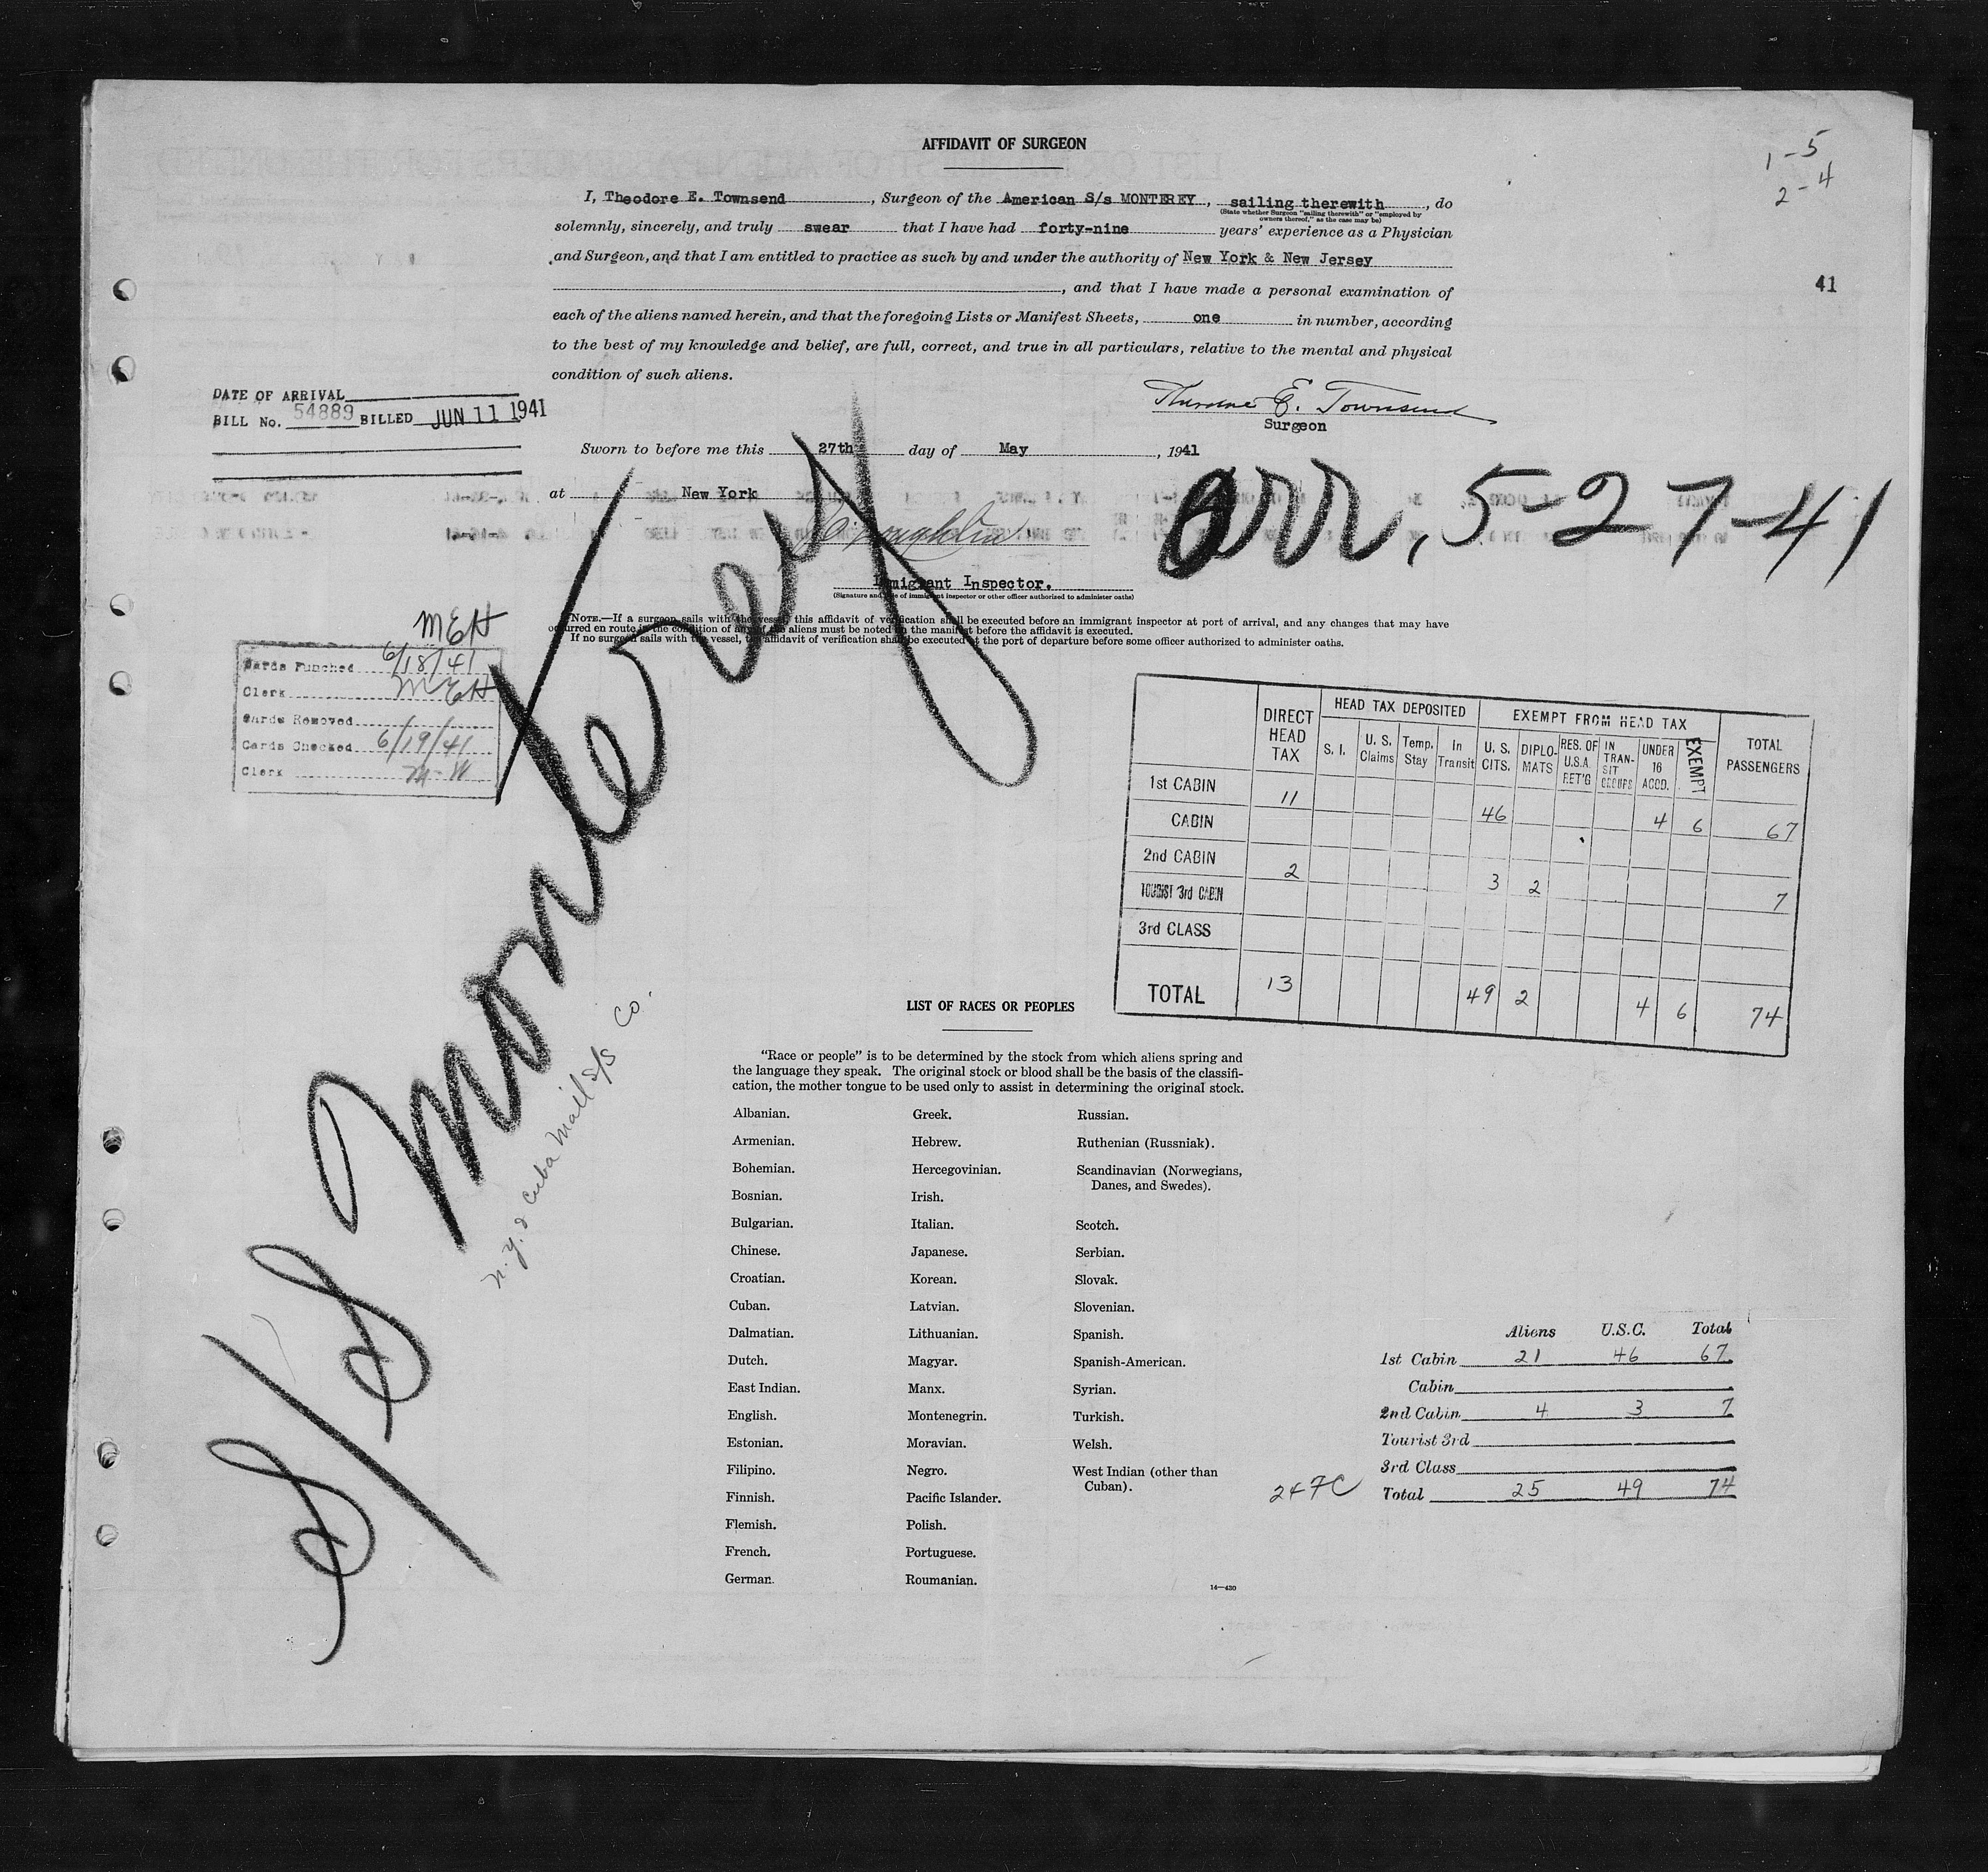 AFFIDAVIT OF SURGEON
1-5
2-4
I, Theodore E. Townsend, Surgeon of the American S/s MONTEREY, sailing therewith, do
(State whether Surgeon "sailing therewith" or "employed by
owners thereof," as the case may be)
solemnly, sincerely, and truly swear that I have had forty-nine years' experience as a Physician
and Surgeon, and that I am entitled to practice as such by and under the authority of New York & New Jersey
, and that I have made a personal examination of
41
each of the aliens named herein, and that the foregoing Lists or Manifest Sheets, one in number, according
to the best of my knowledge and belief, are full, correct, and true in all particulars, relative to the mental and physical
condition of such aliens.
DATE OF ARRIVAL
BILL No. 54889 BILLED JUN 11 1941
Theodore E. Townsend
Surgeon
Sworn to before me this 27th day of May, 1941
at New York
arr, 5-27-41
Immigrant Inspector.
(Signature and title of immigrant inspector or other officer authorized to administer oaths)
NOTE.—If a surgeon sails with the vessel, this affidavit of verification shall be executed before an immigrant inspector at port of arrival, and any changes that may have
occurred en route in the condition of any of the aliens must be noted on the manifest before the affidavit is executed.
If no surgeon sails with the vessel, the affidavit of verification shall be executed at the port of departure before some officer authorized to administer oaths.
MEH
Cards Punched 6/18/41
Clerk MEH
Cards Removed
Cards Checked 6/19/41
Clerk M-W
S/S Monterey
N.Y. & Cuba Mail S/S Co.
DIRECT HEAD TAX HEAD TAX DEPOSITED EXEMPT FROM HEAD TAX TOTAL PASSENGERS
S. I. U. S. Claims Temp. Stay In Transit U. S. CITS. DIPLOMATS RES. OF U.S.A. RET'G IN TRANSIT GROUPS UNDER 16 ACCD. EXEMPT
1st CABIN 11
CABIN 46 4 6 67
2nd CABIN 2
TOURIST 3rd CABIN 3 2 7
3rd CLASS
TOTAL 13 49 2 4 6 74
LIST OF RACES OR PEOPLES
"Race or people" is to be determined by the stock from which aliens spring and
the language they speak. The original stock or blood shall be the basis of the classifi-
cation, the mother tongue to be used only to assist in determining the original stock.
Albanian.
Armenian.
Bohemian.
Bosnian.
Bulgarian.
Chinese.
Croatian.
Cuban.
Dalmatian.
Dutch.
East Indian.
English.
Estonian.
Filipino.
Finnish.
Flemish.
French.
German.
Greek.
Hebrew.
Hercegovinian.
Irish.
Italian.
Japanese.
Korean.
Latvian.
Lithuanian.
Magyar.
Manx.
Montenegrin.
Moravian.
Negro.
Pacific Islander.
Polish.
Portuguese.
Roumanian.
Russian.
Ruthenian (Russniak).
Scandinavian (Norwegians,
Danes, and Swedes).
Scotch.
Serbian.
Slovak.
Slovenian.
Spanish.
Spanish-American.
Syrian.
Turkish.
Welsh.
West Indian (other than
Cuban).
14—430
Aliens U.S.C. Total
1st Cabin 21 46 67
Cabin
2nd Cabin 4 3 7
Tourist 3rd
3rd Class
Total 25 49 74